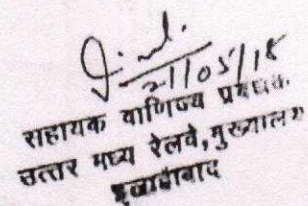 21/05/18
सहायक वाणिज्य प्रबंधक
उत्तर मध्य रेलवे, मुख्यालय
इलाहाबाद